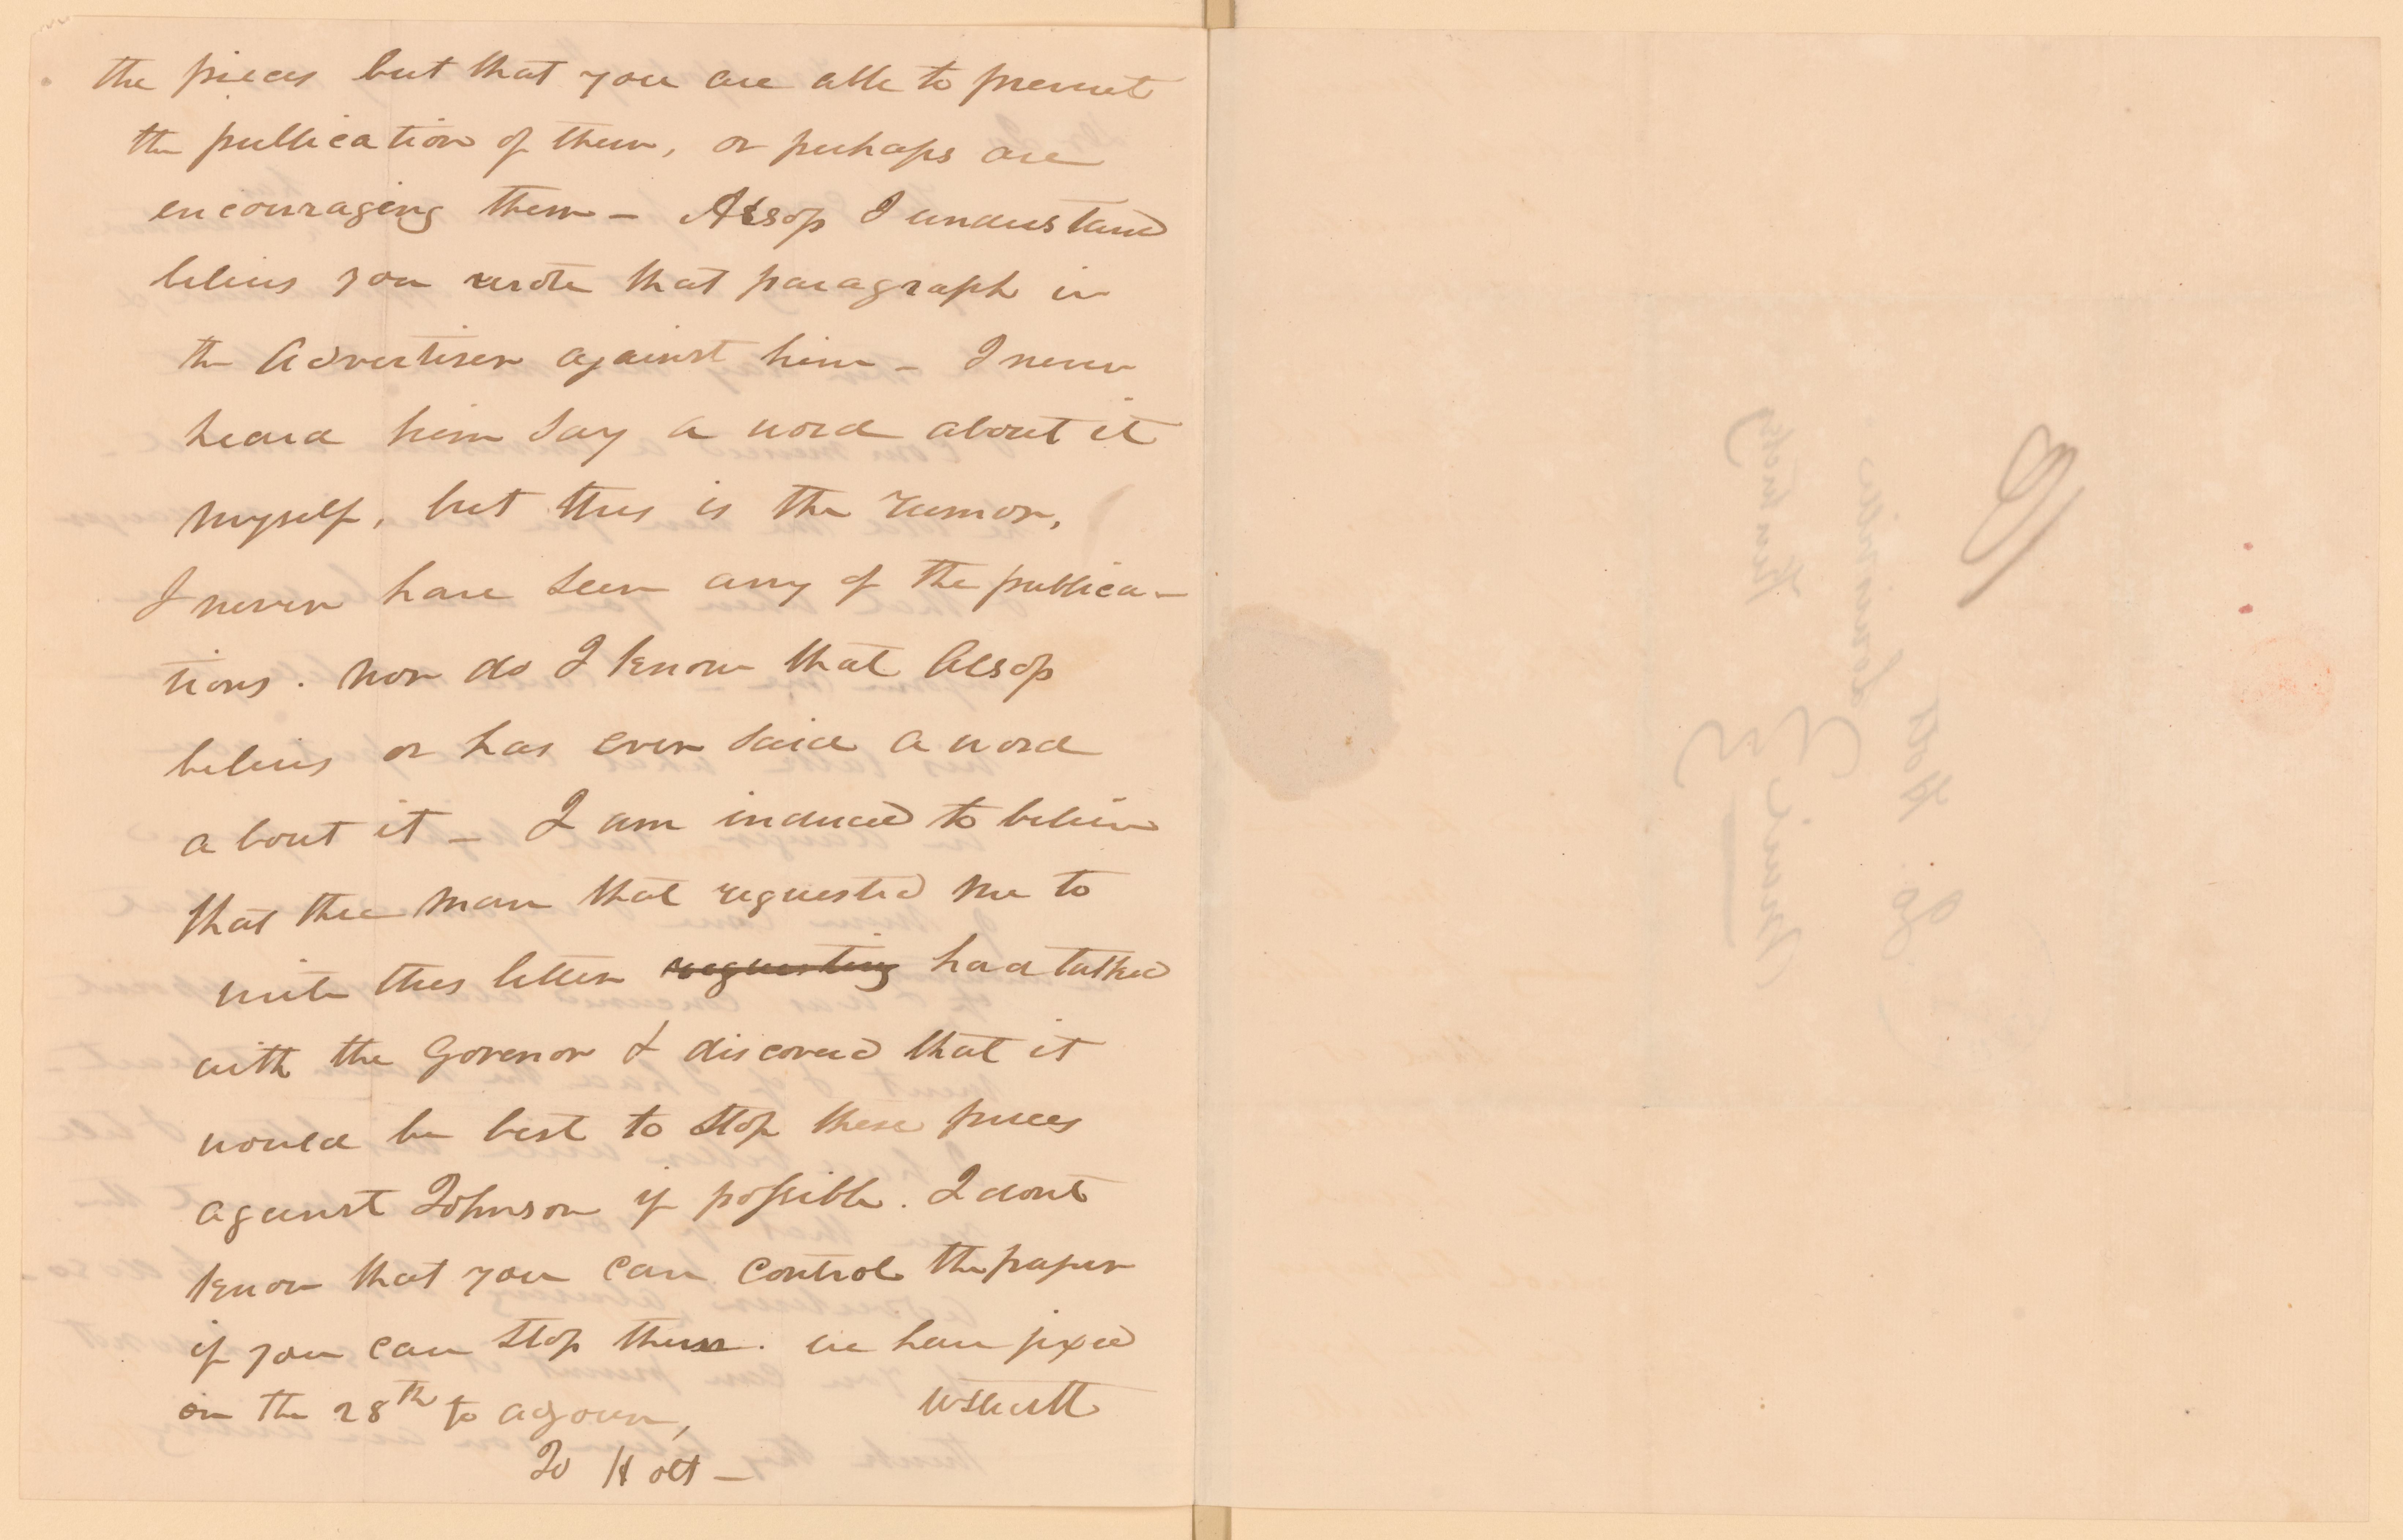 the pieces but that you are able to prevent
the publication of them, or perhaps are
encouraging them - Alsop I understand
belives you wrote that paragraph in
the Advertiser against him - I never
heard him say a word about it
myself, but this is the rumor,
I never have seen any of the publica-
tions. nor do I know that Alsop
belives or has ever said a word
about it - I am induced to believe
that the man that requested me to
write this letter requesting had talked
with the Govenor & discovered that it
would be best to stop these pieces
against Johnson if possible. I dont
know that you can control the paper
if you can stop them. we have fixed
on the 28th to adjourn,
Jo Holt -